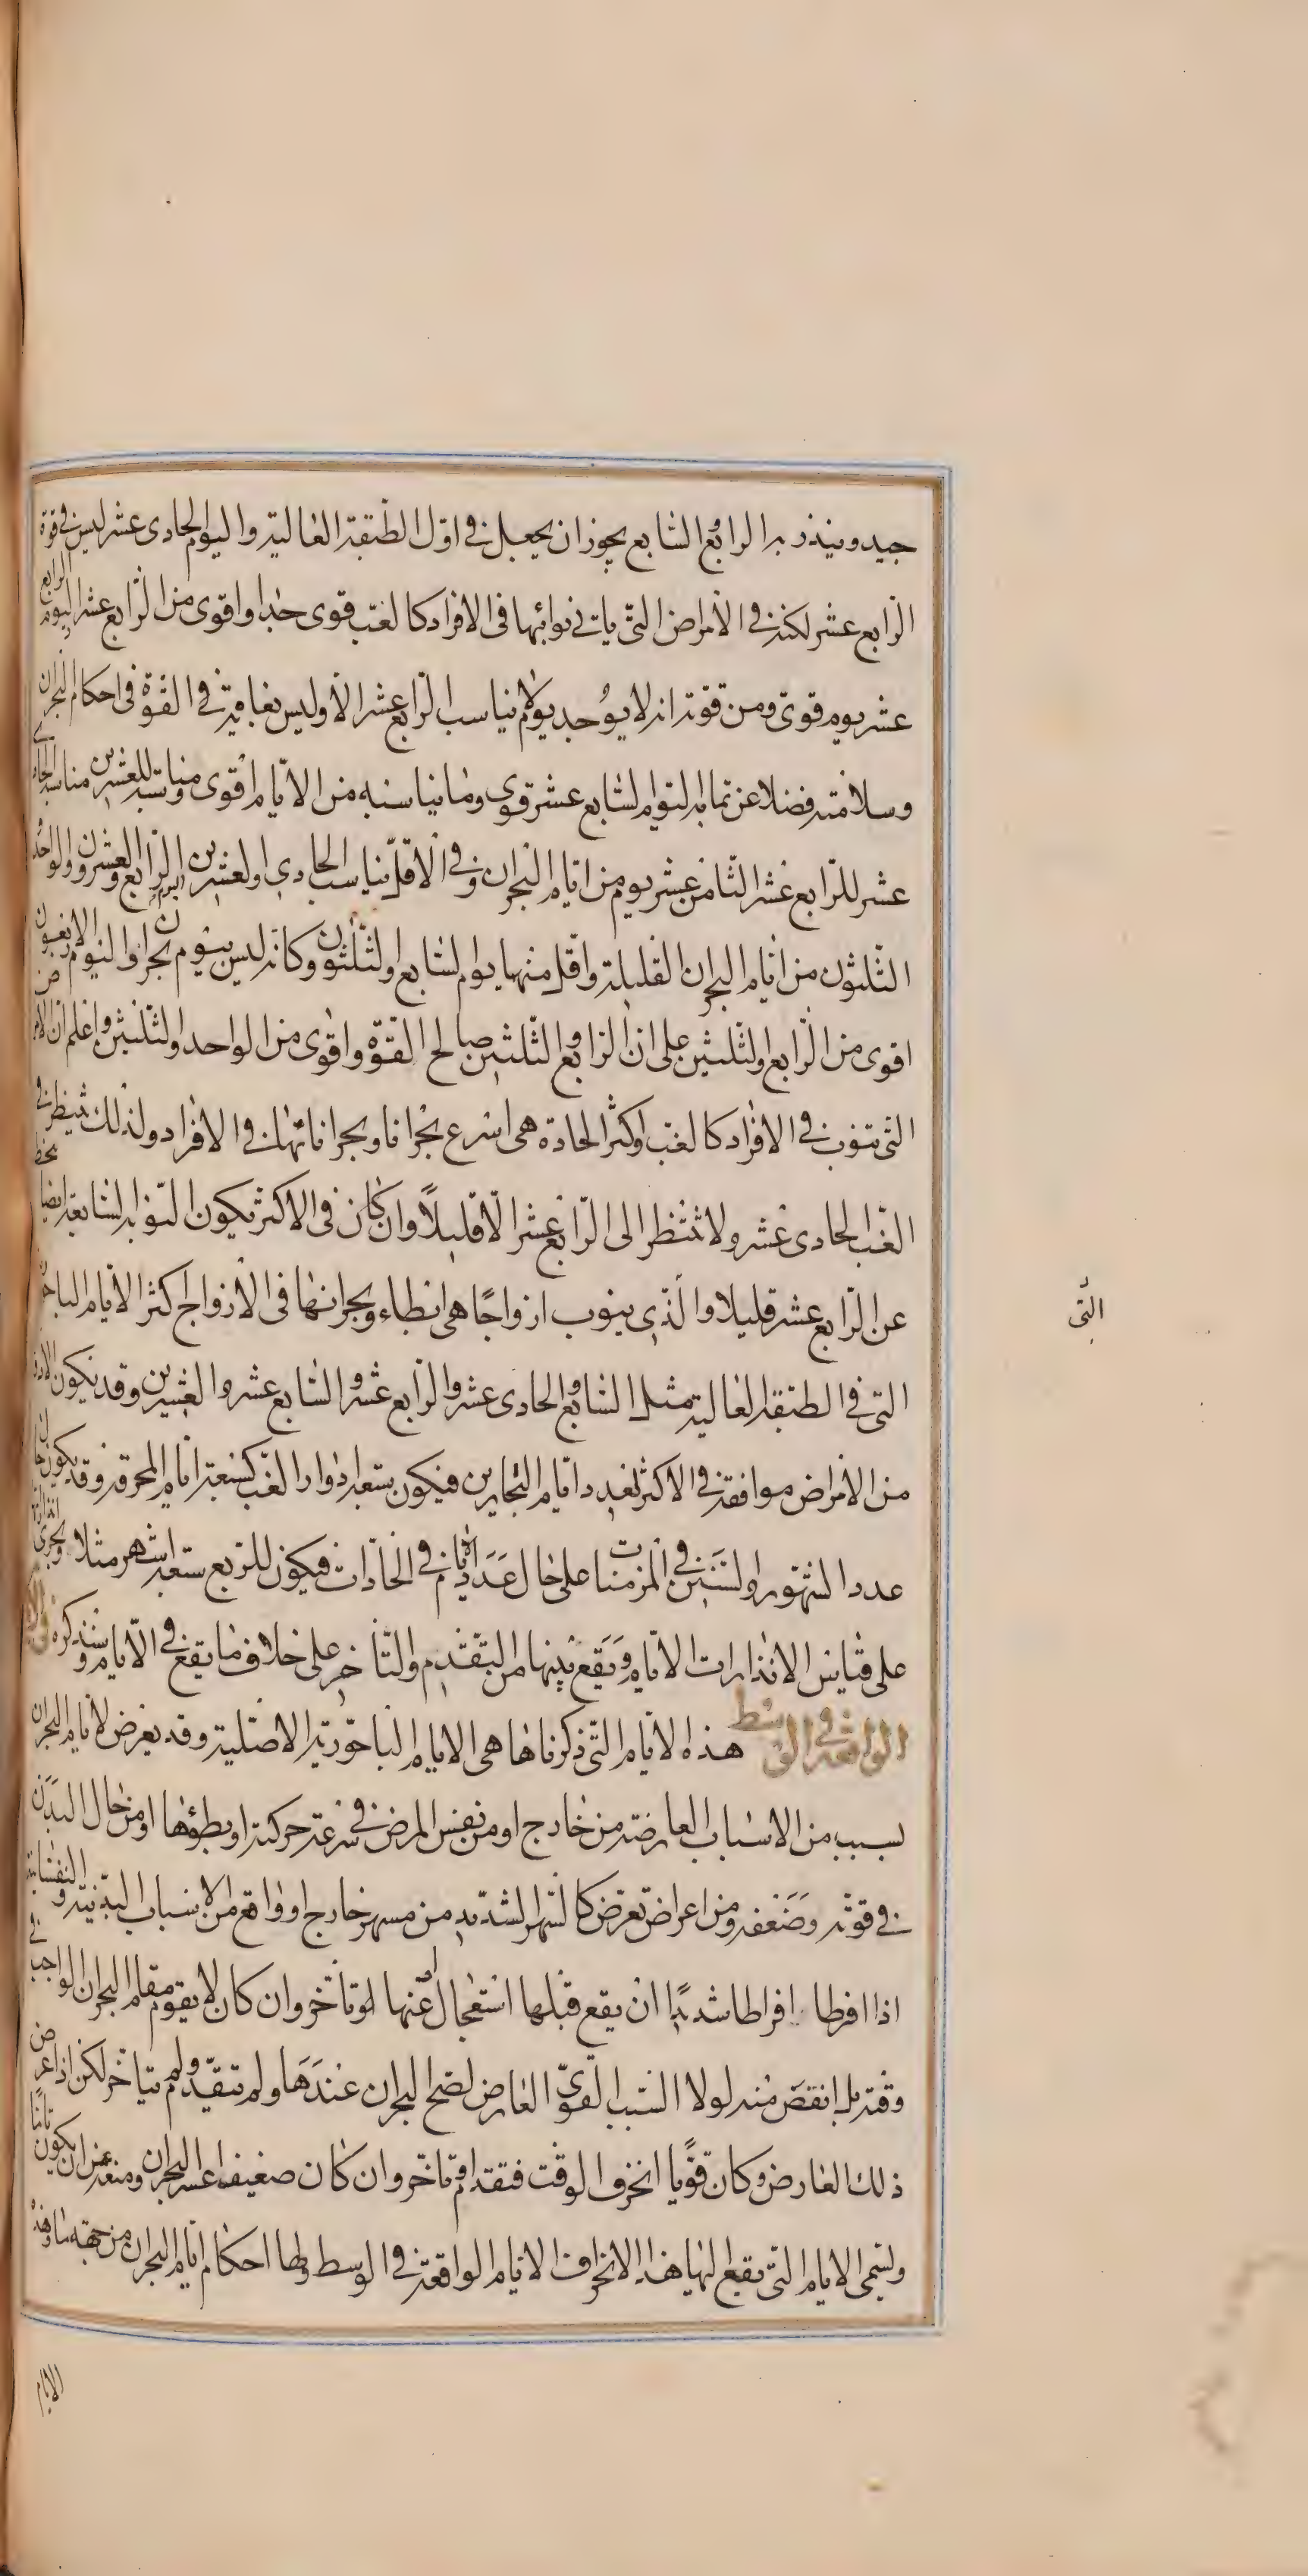 جيد وينذر به الرابع والسابع يجوز ان يجعل في اول الطبقة العالية واليوم الحادى عشر ليس في قوة
الرابع عشر لكنه في الأمراض التى ياتى نوائبها فى الافراد كالغب قوى جدا واقوى من الرابع عشر اليوم الرابع
عشر يوم قوى ومن قوته انه لا يوجد يوم يناسب الرابع عشر الا وليس بغايته في القوة فى احكام البحران
وسلامته فضلا عن تمامه اليوم السابع عشر قوى وما يناسبه من الايام اقوى ومناسبته للعشرين مناسبة الحادى
عشر للرابع عشر الثامن عشر يوم من ايام البحران وفي الاقل يناسب الحادي والعشرين اليوم الرابع والعشرون والواحد
الثلثون من ايام البحران القليلة واقل منها يوم السابع والثلثون وكانه ليس بيوم بحران واليوم الاربعون
اقوى من الرابع والثلثين على ان الرابع والثلثين صالح القوة واقوى من الواحد والثلثين واعلم ان الامراض
التى تنوب في الافراد كالغب واكثر الحادة هى اسرع بحرانا وبحراناتها في الافراد ولذلك تنتظر في
الغب الحادى عشر ولا تنتظر الى الرابع عشر الا قليلاً وان كان فى الاكثر تكون النوبة السابعة ايضا
عن الرابع عشر قليلا والذى ينوب ازواجًا هى ابطاء وبحرانها فى الأزواج اكثر الايام الباحورية
التى في الطبقة العالية مثل السابع والحادى عشر والرابع عشر والسابع عشر والعشرين وقد تكون الادوار
من الأمراض موافقة في الاكثر لعدد ايام البحارين فيكون سبعة ادوار الغب كسبعة ايام المحرقة وقد يكون حال
عدد الشهور والسنين في المزمنات على حال عدد الأيام في الحادات فيكون للربع سبعة اشهر مثلا وتجرى انذاراتها
على قياس الانذارات الايام ويقع بينها من التقدم والتأخر على خلاف ما يقع في الايام وسنذكره في الايام
الواقعة في الوسط هذه الأيام التى ذكرناها هى الايام الباحورية الاصلية وقد يعرض لايام البحران
بسبب من الاسباب العارضة من خارج او من نفس المرض في سرعة حركته او بطؤها او من حال البدن
في قوته وضعفه ومن اعراض تعرض كالسهر الشديد من مسهر خارج او واقع من الاسباب البدنية والنفسانية
اذا افرطا افراطا شديدًا ان يقع قبلها استعجال عنها او تأخر وان كان لا يقوم مقام البحران الواجب في
وقته بل انقص منه لولا السبب القوىّ العارض لصح البحران عندها ولم تتقدم ولم تتأخر لكن اذا عرض
ذلك العارض وكان قويًا انحرف الوقت فتقدم او تاخر وان كان ضعيفا عسر البحران ومنعه عن ان يكون تامًا
ولنسمى الايام التى يقع اليها هذا الانحراف الايام الواقعة في الوسط ولها احكام ايام البحران من جهة ما وهذه
التى
الايام